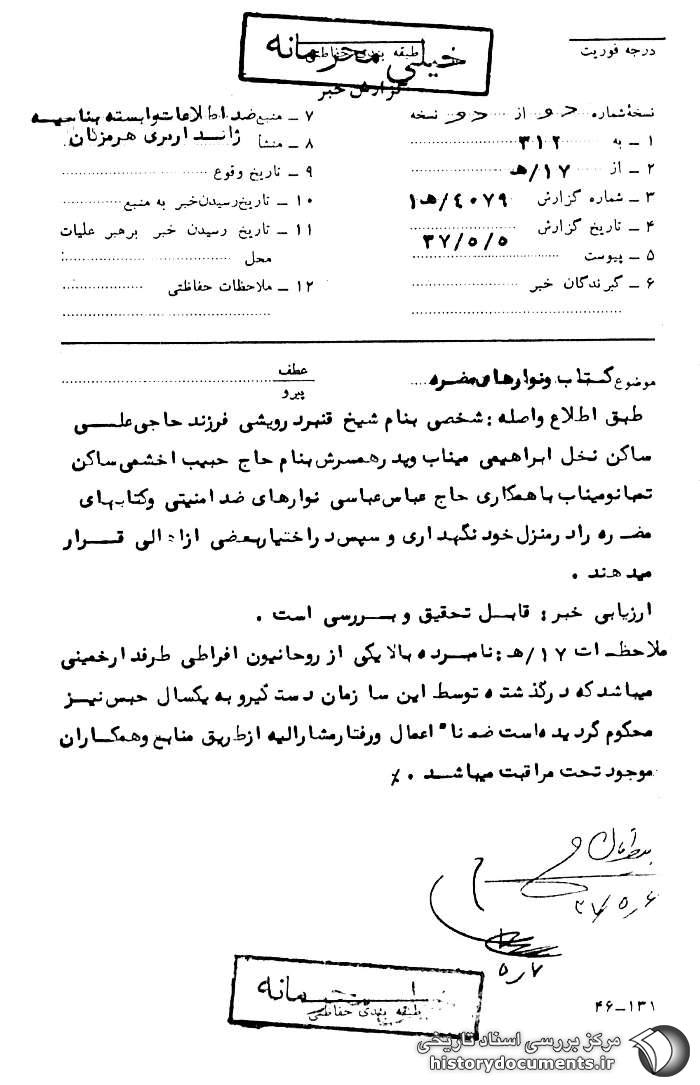 درجه فوریت
طبقه بندی حفاظتی
خیلی محرمانه
گزارش خبر
نسخهٔ شماره دو از دو نسخه
۱ ـ به ۳۱۲
۲ ـ از ۱۷/هـ
۳ ـ شماره گزارش ۴۰۷۹/هـ۱
۴ ـ تاریخ گزارش ۳۷/۵/۵
۵ ـ پیوست
۶ ـ گیرندگان خبر
۷ ـ منبع ضد اطلاعات وابسته بناحیه
۸ ـ منشأ ژاندارمری هرمزگان
۹ ـ تاریخ وقوع
۱۰ ـ تاریخ رسیدن خبر به منبع
۱۱ ـ تاریخ رسیدن خبر برهبر عملیات
محل
۱۲ ـ ملاحظات حفاظتی
موضوع کتاب ونوارهای مضره
عطف
پیرو
طبق اطلاع واصله : شخصی بنام شیخ قنبردرویشی فرزند حاجی علی
ساکن نخل ابراهیمی میناب وپدرهمسرش بنام حاج حبیب اخشمی ساکن
میناب باهمکاری حاج عباس عباسی نوارهای ضد امنیتی وکتابهای
مضره رادرمنزل خود نگهداری و سپس دراختیاربعضی ازاهالی قرار
میدهند .
ارزیابی خبر : قابل تحقیق و بررسی است .
ملاحظات ۱۷/هـ : نامبرده بالایکی از روحانیون افراطی طرفدارخمینی
میباشد که درگذشته توسط این سازمان دستگیرو به یکسال حبس نیز
محکوم گردیده است ضمنا" اعمال ورفتارمشارالیه ازطریق منابع وهمکاران
موجود تحت مراقبت میباشد . ٪
۳۷/۵/۶
۵/۷
محرمانه
طبقه بندی حفاظتی
۴۶ـ۱۳۱
مرکز بررسی اسناد تاریخی
historydocuments.ir